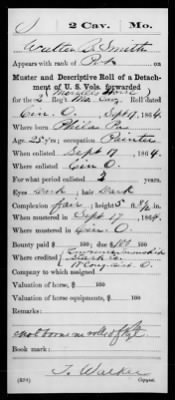 2 Cav. Mo.
Walter B. Smith
Appears with rank of Pvt. on
Muster and Descriptive Roll of a Detach-
ment of U. S. Vols. forwarded
(Merrill's Horse)
for the 2 Reg't Mo. Cav. Roll dated
Cin. O. Sept 17, 1864.
Where born Phila Pa.
Age 25 y'rs; occupation Painter
When enlisted Sept 17, 1864.
Where enlisted Cin O.
For what period enlisted years.
Eyes Dark; hair Dark
Complexion fair; height 5 ft. in.
When mustered in Sept 17, 1864.
Where mustered in Cin. O.
Bounty paid $ 100; due $ 100
Where credited
Company to which assigned
Valuation of horse, $ 100
Valuation of horse equipments, $ 100
Remarks:
not borne on rolls of
Book mark:
J. Walker
Copyist.